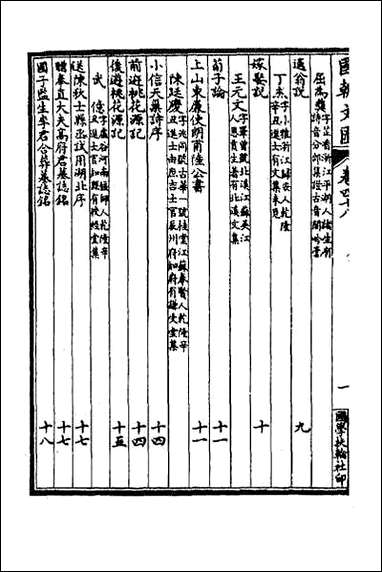 國朝文匯 卷四十八 一 國學扶輪社印
屈為彝 字 浙江平湖人諸生有
詩音分部集證古音 吟
遠翁說 九
丁杰 字小雅浙江歸安人乾隆
辛丑進士有文集
嫁娶說 十
王元文 字 曾號北溪江蘇吳江
人恩貢生著有北溪文集
荀子論 十一
上山東廉使朗甫陸公書 十一
陳廷慶 字兆同號古華一號桂堂江蘇奉賢人乾隆辛
丑進士由庶吉士官辰州府知府有謙受堂集
小信天巢詩序 十四
前遊桃花源記 十四
後遊桃花源記 十五
武億 字虛谷河南偃師人乾隆辛
丑進士官知縣有授經堂集
送陳秋士縣丞試用湖北序 十七
贈奉直大夫高府君墓誌銘 十七
國子監生李君合葬墓誌銘 十八